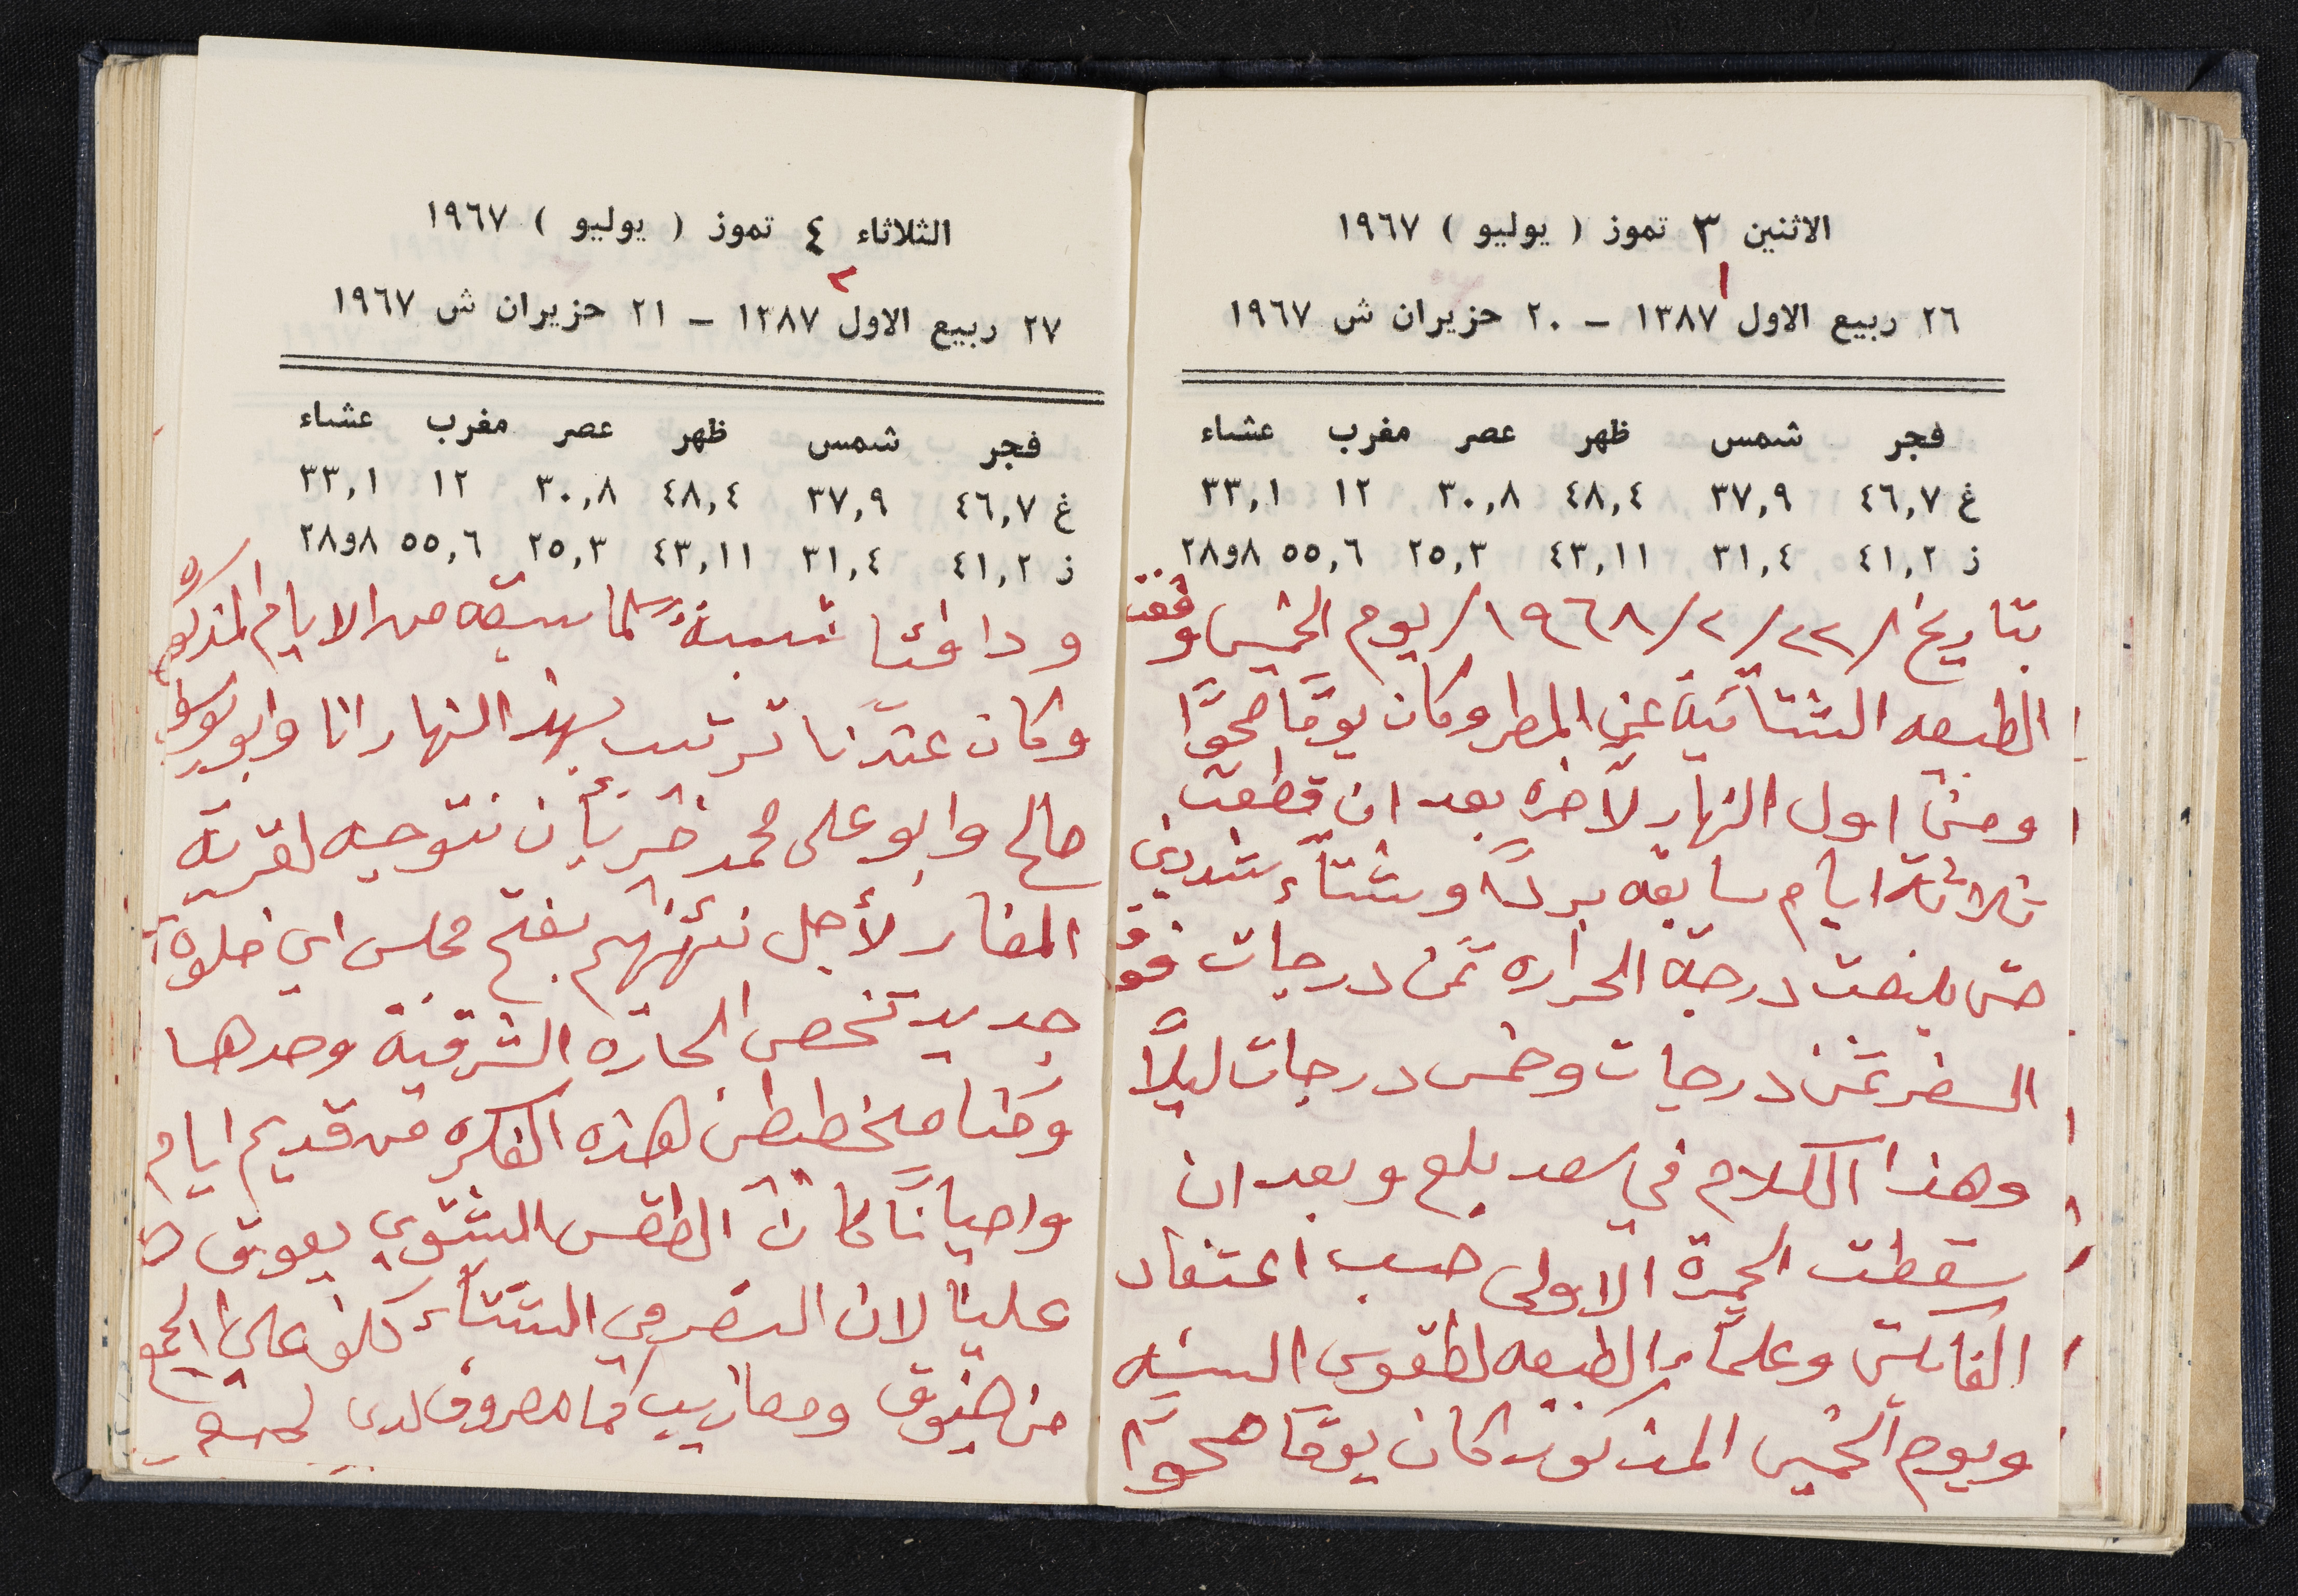 الاثنين ٣ تموز ( يوليو ) ١٩٦٧
١
٢٦ ربيع الاول ١٣٨٧ – ٢٠ حزيران ش ١٩٦٧
فجر شمس ظهر عصر مغرب عشاء
غ ٤٦,٧ ٣٧,٩ ٤٨,٤ ٣٠,٨ ١٢ ٣٣,١
ز ٤١,٢ ٣١,٤ ٤٣,١١ ٢٥,٣ ٥٥,٦ ٢٨و٨
بتاريخ /٢٢/٢/١٩٦٨/ يوم الخميس وقفت
الطبيعه الشتائية عن المطر وكان يومًا صحوًا
ومن اول النهار لآخره بعد ان قطعت
ثلاثة ايام سابقه بردًا وشتاًء شديدين
حتى بلغت درجة الحراره ثمن درجات فوق
السفر ثمن درجات وخمس درجات ليلًا
وهذا الكلام في سعد بلع وبعد ان
سقطت الجمرة الاولى حسب اعتقاد
الفالكين وعلماء الطبيعه لطقوس السنه
ويوم الخميس المذكور كان يومًا صحوًا
الثلاثاء ٤ تموز ( يوليو ) ١٩٦٧
٢
٢٧ ربيع الاول ١٣٨٧ – ٢١ حزيران ش ١٩٦٧
فجر شمس ظهر عصر مغرب عشاء
غ ٤٦,٧ ٣٧,٩ ٤٨,٤ ٣٠,٨ ١٢ ٣٣,١
ز ٤١,٢ ٣١,٤ ٤٣,١١ ٢٥,٣ ٥٥,٦ ٢٨و٨
ودافئا نسبةً لما سبقه من الايام المذكوره
وكان عندنا ترتيب بهذ النهار انا وابو يوسف
صالح وابو علي محمد خير بأن نتوجه لقرية
المغار لأجل نهنئهم بفتح مجلس اي خلوة
جديد تخص الحاره الشرقية وحدها
وكنا مخططين لهذه الفكره من قديم ايام
واحيانًا كان الطقس الشتوي يعوق
علينا لان السفر في الشتاء كلف على الجميع
من ضيوف ومعازيب كما معروف لدى